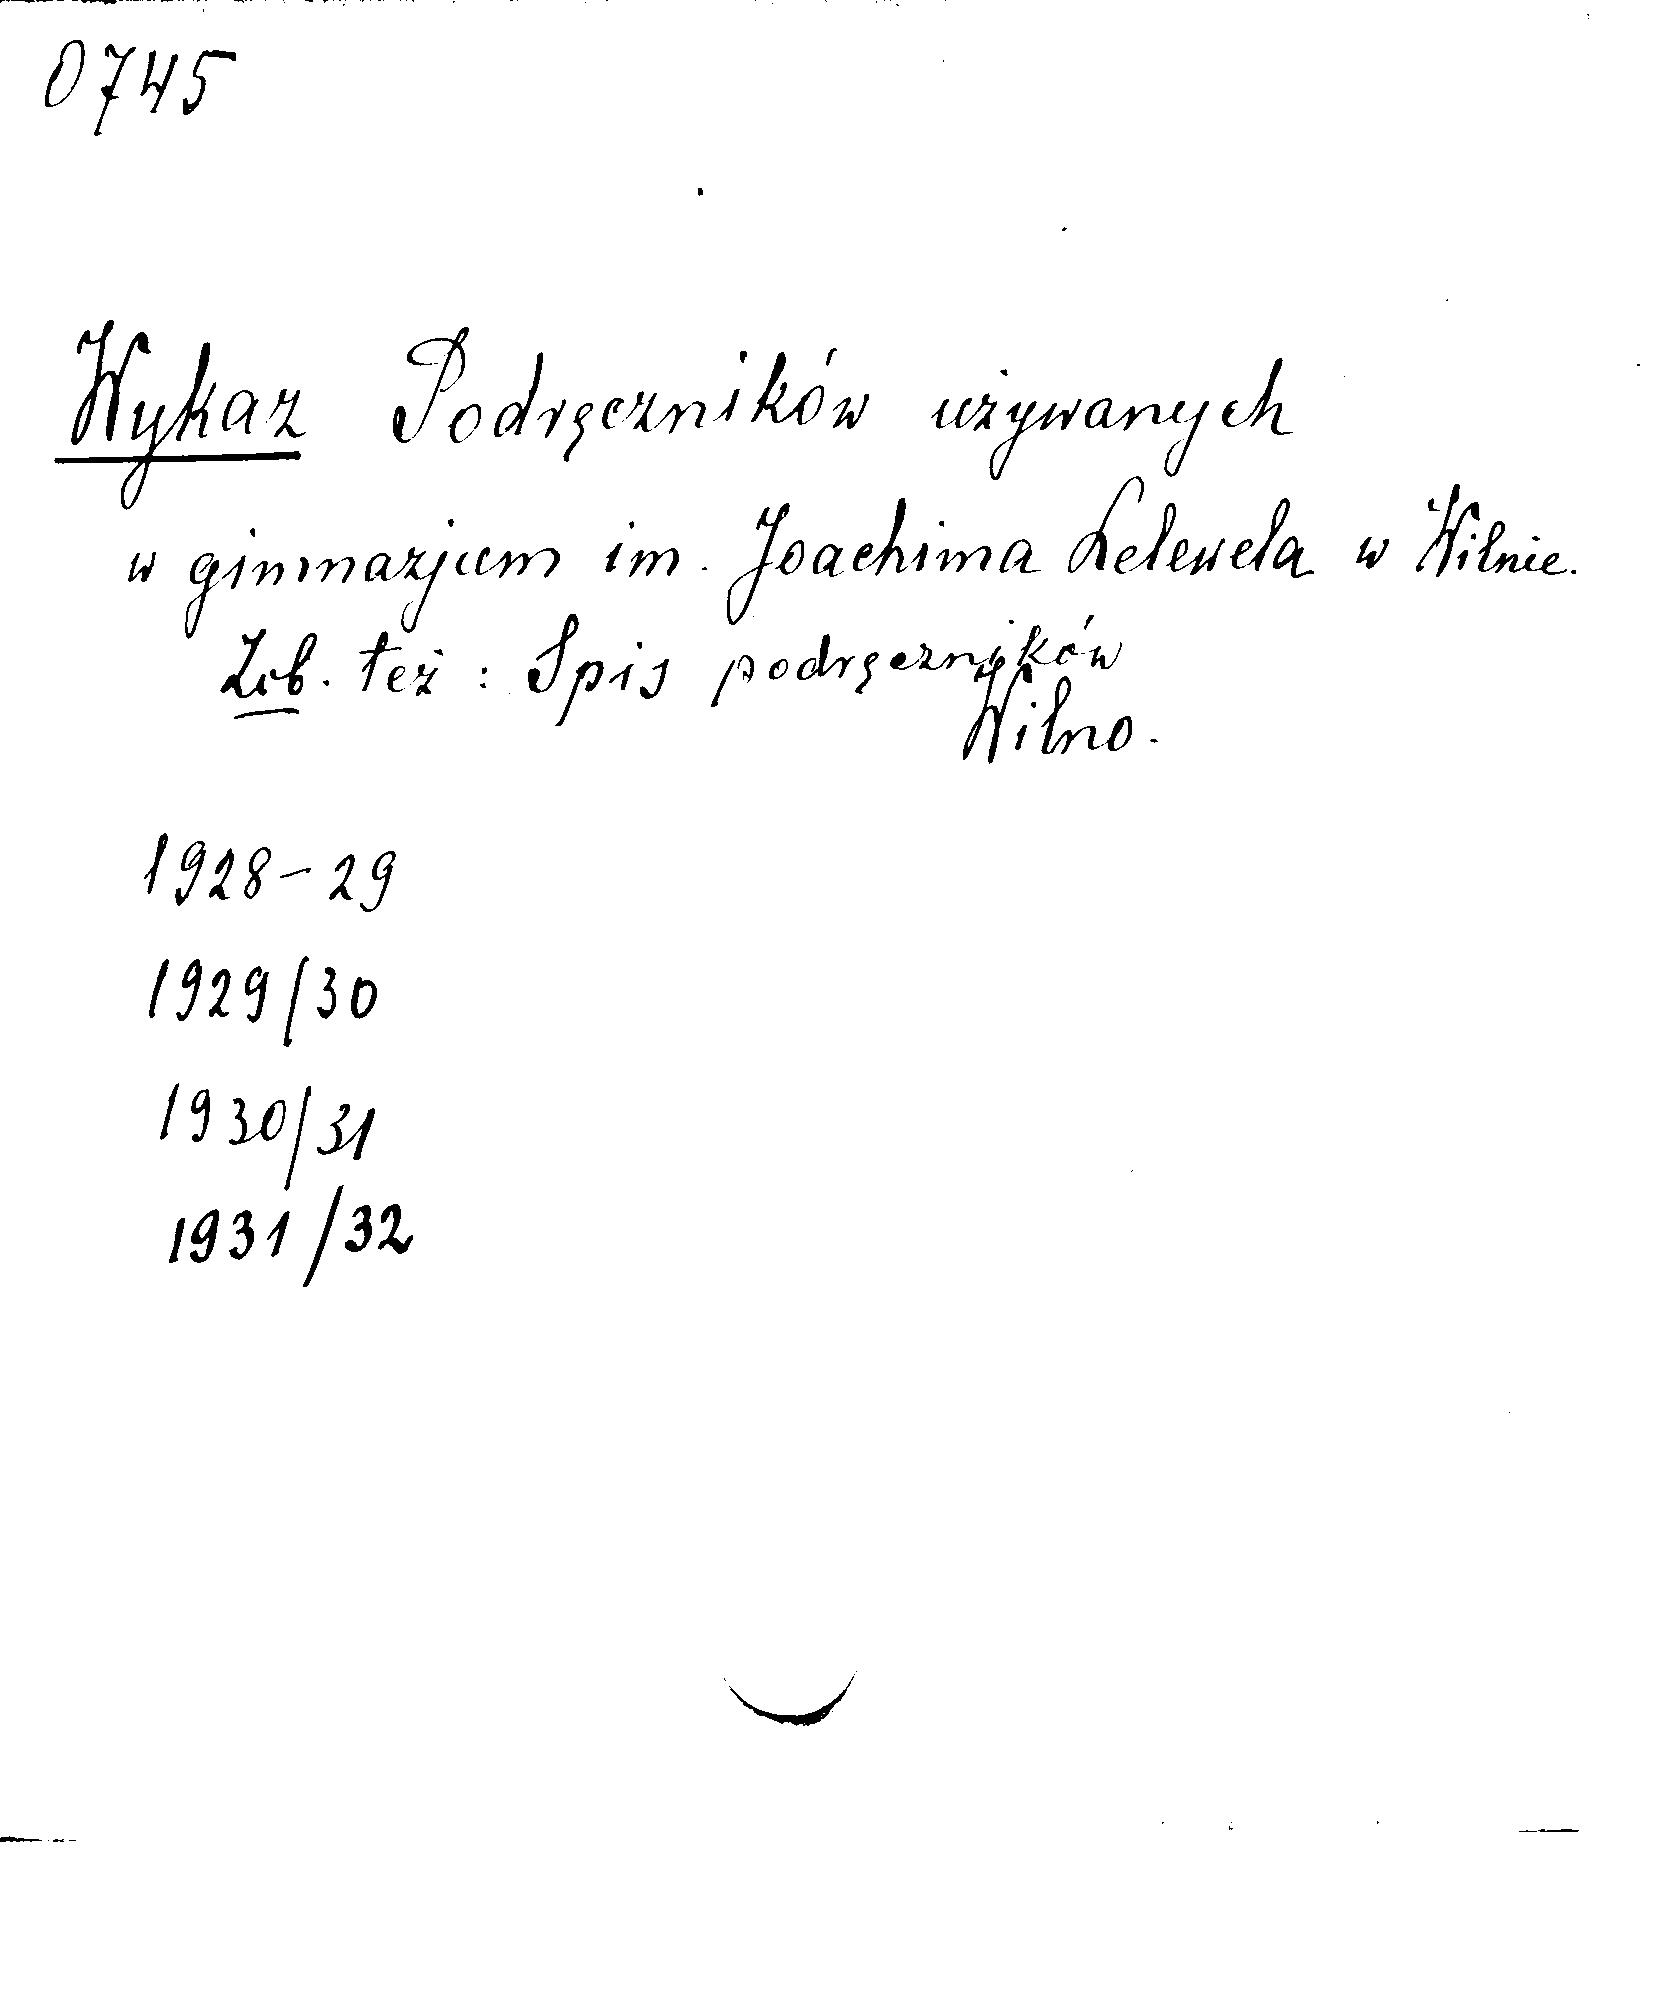 0745
Wykaz Podręczników używanych
w gimnazjum im. Joachima Lelewela w Wilnie.
Zob. też : Spis podręczników
Wilno.
1928-29
1929/30
1930/31
1931/32